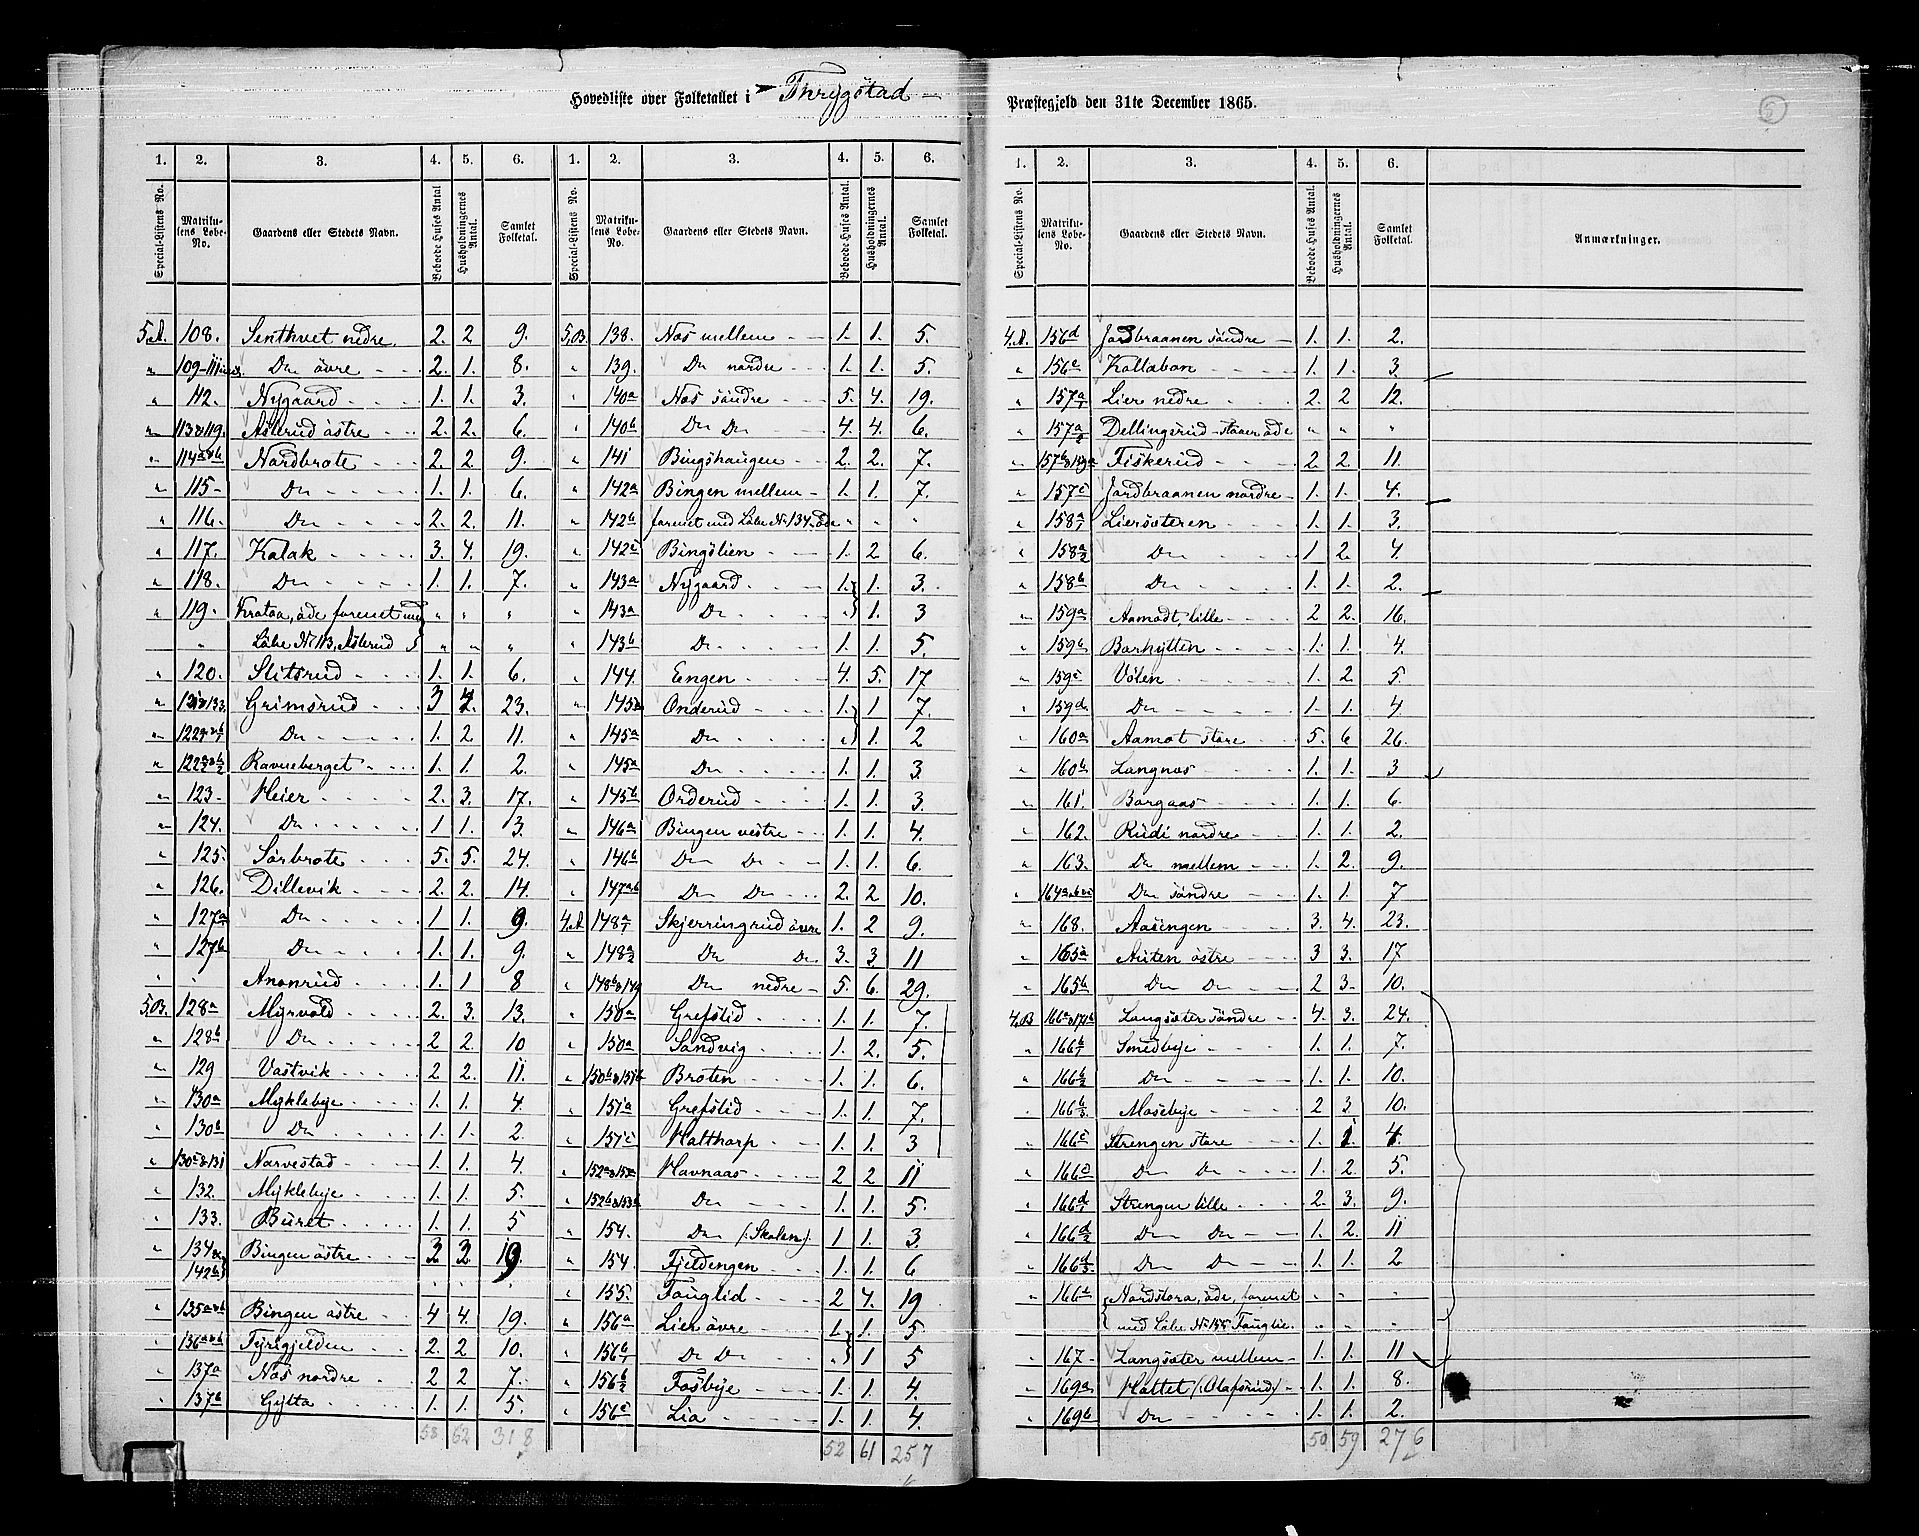 Hovedliste over Folketallet i Thrygstad —
Præstegjeld den 31te December 1865.
5
1. 2. 3. 4. 5. 6.
Special-Listens No. Matrikulens Løbe-No. Gaardens eller Stedets Navn. Beboede Huses Antal Husholdningernes Antal. Samlet Folketal.
5.A. 108. Senthvet nedre 2. 2 9.
" 109-111 Do övre 2. 1. 8.
" 112. Nygaard 1. 1. 3.
" 113&119. Aslerud östre 2. 2. 6.
" 114a&b Nordbrote 2. 2. 9.
" 115 Do 1. 1. 6.
" 116. Do 2. 2. 11.
" 117. Kalak 3. 4. 19.
" 118. Do 1. 1. 7.
" 119. Krataa, öde forenet med " " "
" Löbe No 113, Aslerud " " "
" 120. Slitsrud 1. 1. 6.
" Grimsrud 3 4. 23.
" Do 1. 2 11.
" Ravneberget 1. 1. 2.
" 123. Heier 2. 3. 17.
" 124. Do 1 1. 3.
" 125. Sörbrote 5. 5. 24.
" 126. Dillevik 2. 2. 14.
" 127a Do 1. 1. 9.
" 127b Do 1. 1. 9.
" " Anonrud 1. 1 8
5.B. 128a Myrvold 2. 3. 13.
" 128b Do 2 2. 10
" 129 Vastvik 2 2. 11.
" 130a Myklebye 1. 1. 4.
" 130b Do 1. 1. 2.
" 130c&131 Narvestad 1. 1. 4.
" 132. Myklebye 1. 1. 5.
" 133. Buret 1. 1. 5
" 134& 142b Bingen östre 3 3 19.
" 135a&b Bingen östre 4 4. 19.
" 136a&b Fyrigjelden 2. 2 10.
" 137a Nos nordre 2 2 7.
" 137b Gylta 1. 1. 5.
58 62 318
1. 2. 3. 4. 5. 6.
Special-Listens No. Matrikulens Løbe-No. Gaardens eller Stedets Navn. Beboede Huses Antal. Husholdningernes Antal. Samlet Folketal.
5.B. 138. Nos mellem 1. 1. 5.
" 139. Do nordre 1. 1. 5.
" 140a Nos söndre 5. 4. 19.
" 140b Do Do 4. 4. 6.
" 141 Bingshaugen 2. 2. 7.
" 142a Bingen mellem 1. 1. 7.
" 142b forenet med Löbe No 134, öde " " "
" 142c Bingslien 1. 2 6.
" 143a Nygaard 1. 1. 3.
" 143a Do " 1. 3
" 143b Do 1. 1. 5.
" 144. Engen 4. 5. 17
" 145a Onderud 1. 1 7.
" 145a Do " 1. 2
" 145a Do 1. 1. 3.
" 145b Orderud 1. 1. 3.
" 146a Bingen vestre 1. 1. 4.
" 146b Do Do 1. 1. 6.
" 147a&b Do Do 2. 2 10.
4.A 148a/1 Skjerringrud övre 1. 2 9.
" 148a/2 Do Do 3. 3 11
" 148b&149 Do nedre 5. 6. 29.
" 150a Grefslid 1. 1. 7.
" 150a Sandvig 1. 2. 5.
" 150b&151b Broten 1. 1. 6.
" 151a Grefslid 1. 1. 7.
" 151c Halthorp 1. 1. 3
" Havnaas 2 2 11
" Do 1. 1. 5.
" 154. Do (: Skolen :) 1. 1. 3.
" 154. Fjeldengen 1. 1. 6
" 155. Fauglid 2 4. 19
" 156a Lier övre 1. 1. 5
" 156b/1 Do Do " 1 5
" 156b/2 Fosbye 1. 1. 4.
" 156c Lia 1. 1. 4.
52 61 257
1. 2. 3. 4. 5. 6.
Special-Listens No. Matrikulens Løbe-No. Gaardens eller Stedets Navn. Beboede Huses Antal. Husholdningernes Antal. Samlet Folketal. Anmærkninger.
4.A. 156d Jordbraanen söndre 1. 1. 2.
" 156e Kollabon 1. 1. 3.
" 157a/1 Lier nedre 2. 2 12.
" 157a/2 Dellingsrud - staaer öde " " "
" Fiskerud 2 2. 11.
" 157c Jordbraanen nordre 1. 1. 4.
" 158a/1 Liersæteren 1. 1. 3.
" 158a/2 Do 1 2. 4.
" 158b Do 1. 1. 2.
" 159a Aamodt, lille 2 2. 16.
" 159b Borhytten 1. 1. 4.
" 159c Völen 1. 2 5.
" 159d Do 1. 1. 4
" 160a Aamot store 5. 6 26.
" 160b Langnos 1. 1. 3
" 161. Borgaas 1. 1. 6.
" 162. Rudi nordre 1. 1. 2.
" 163. Do mellem 1. 2. 9.
" Do söndre 1. 1. 7
" 168. Aasengen 3. 4. 23.
" 165a Auten östre 3 3. 17
" 165b Do Do 2 3. 10.
4.B 166a&171b Langsæter söndre 4. 3. 24.
" 166b/1 Smedbye 1. 1. 7.
" 166b/2 Do 1. 1. 10.
" 166b/3 Mosebye 2 3. 10.
" 166c Strengen store 1. 1 4.
" 166c Do Do 1. 2 5.
" 166d/1 Strengen lille 2. 3. 9.
" 166d/2 Do Do 1. 2. 11
" 166d/3 Do Do 1. 1. 2
" 166e Nordstora, öde, forenet " " "
med Löbe No 155 Fauglie. " " "
" 167 Langsæter mellem 1. 1. 11
" 169a Hattet (: Olafsrud) 1. 1. 8.
" 169b Do 1. 1. 2.
50 59 276